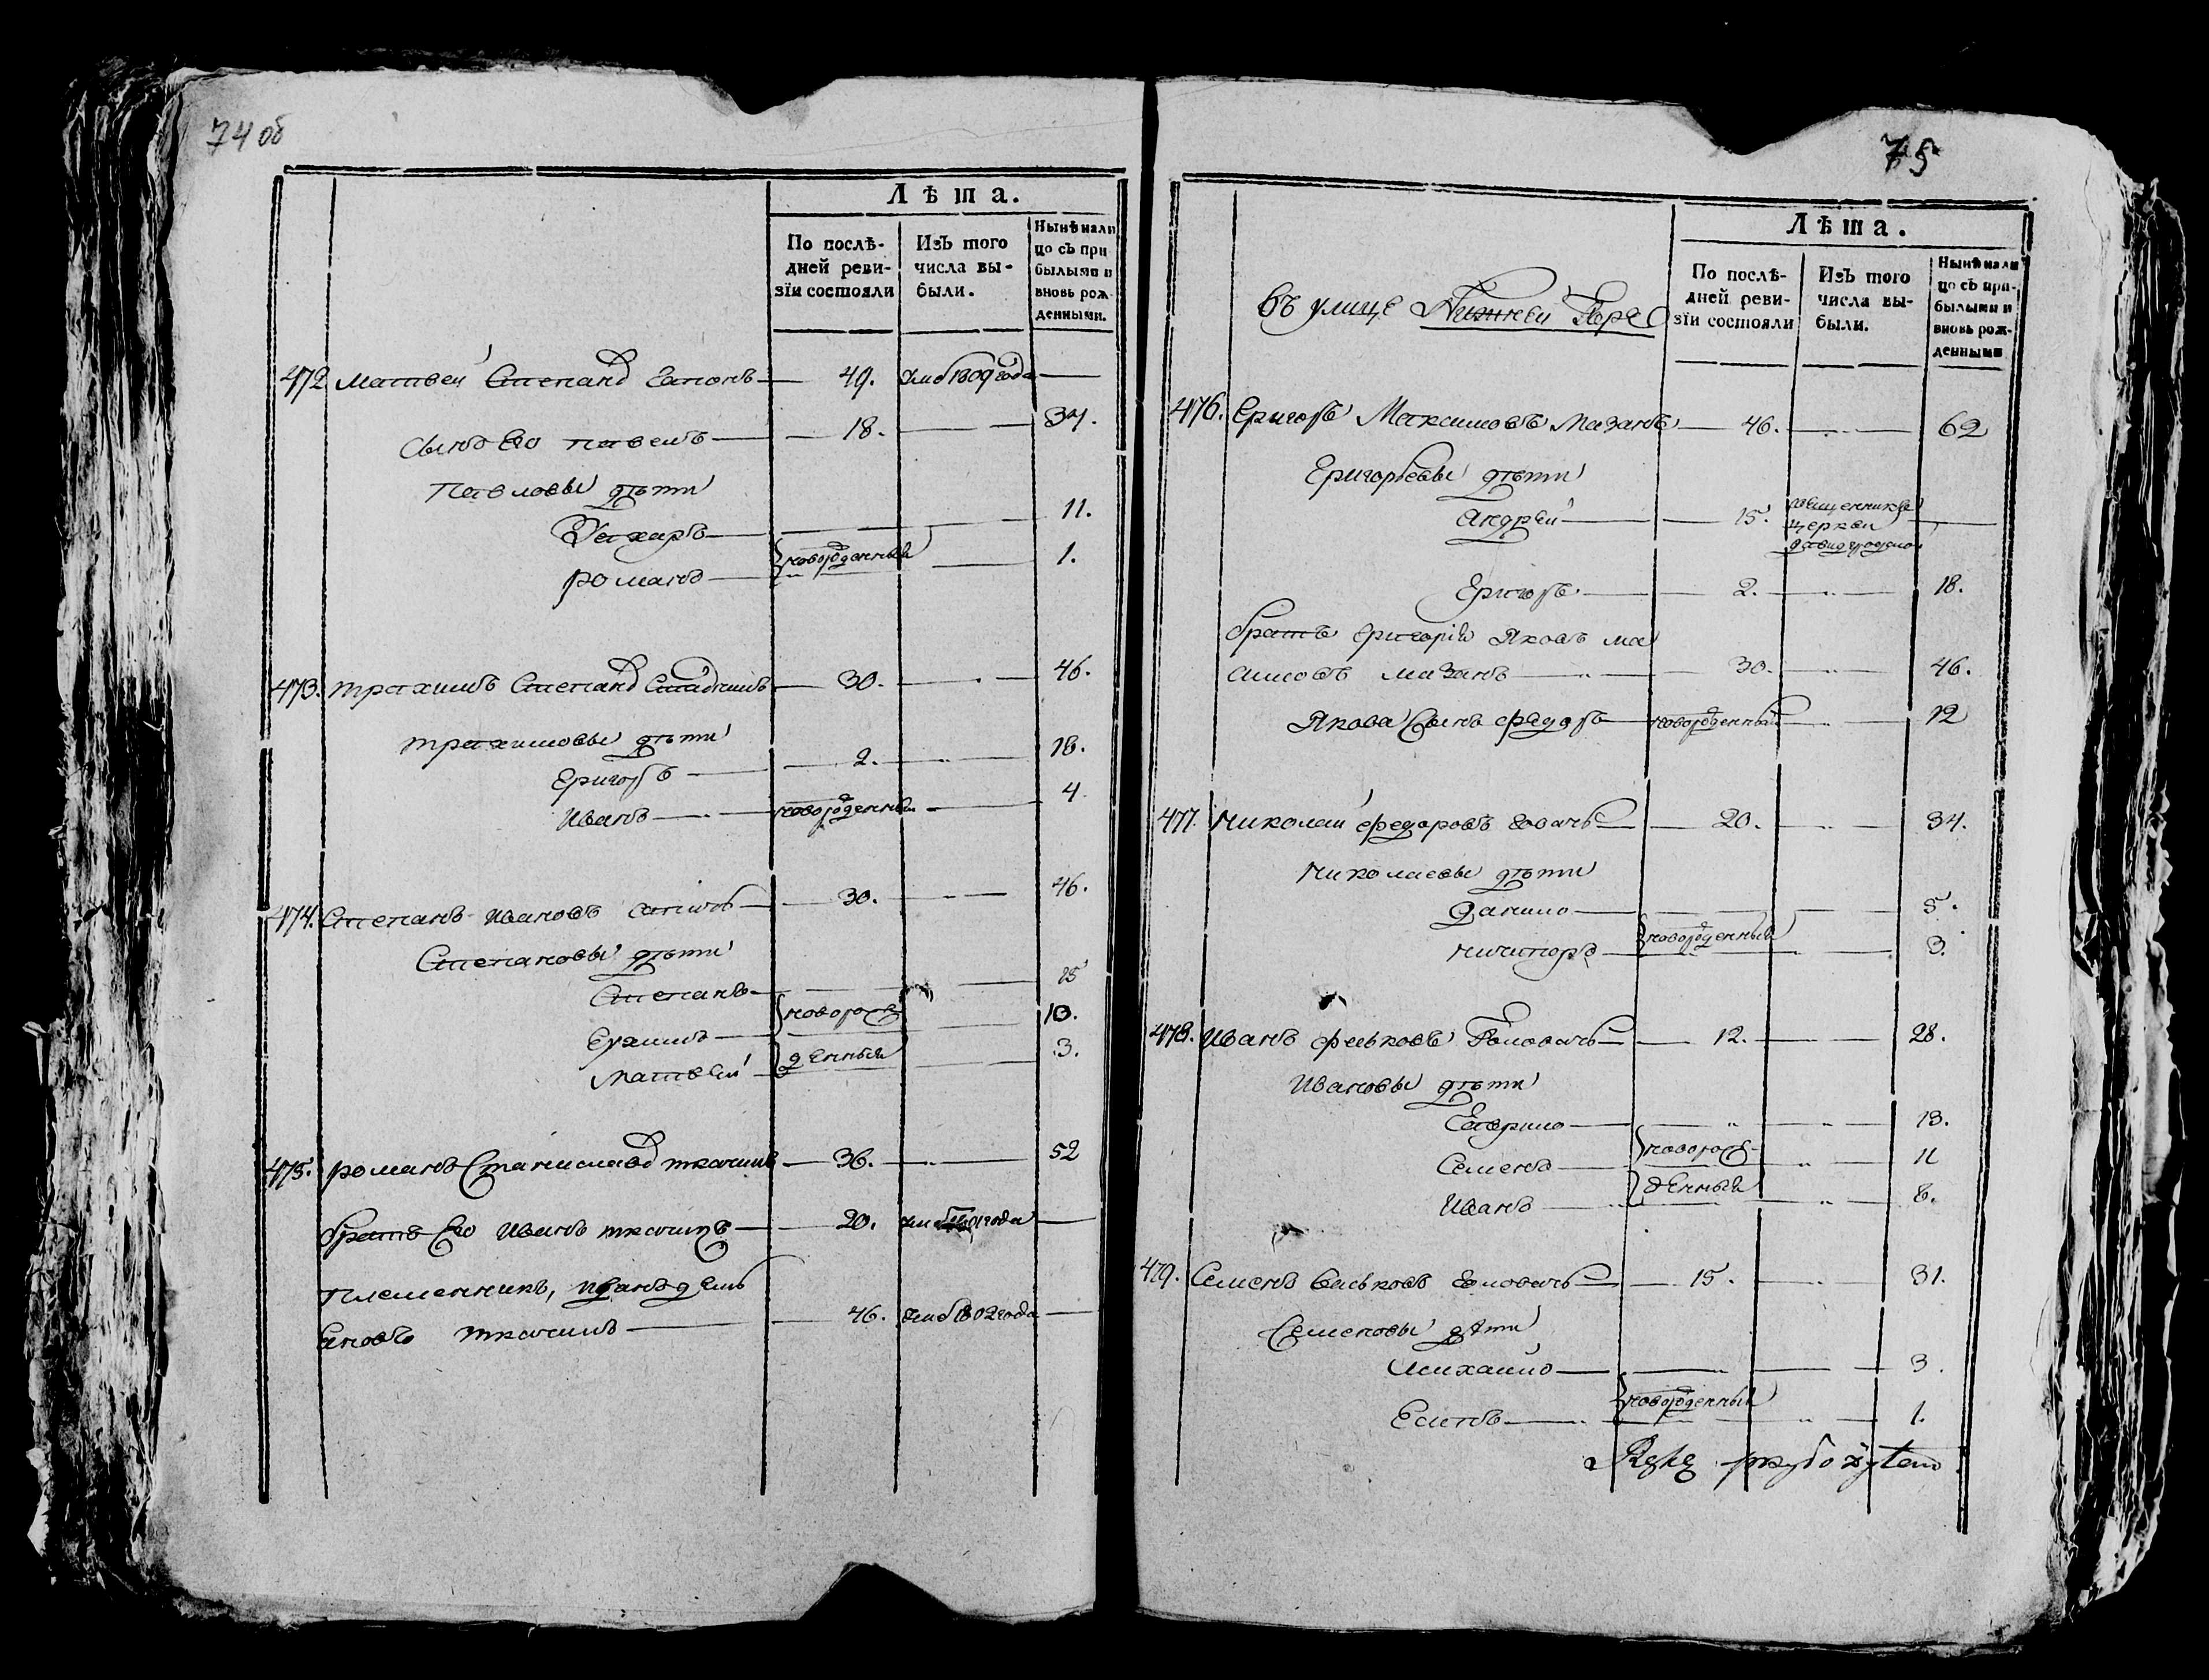 74 об
Лѣта.
По послѣ-
дней реви-
зїи состояли
Изъ того
числа вы-
были.
Нынѣ нали
цо съ при
былыми и
вновь рож-
денными.
472 Матвей Степанд — 49. 1809 года —
Сынъ Его павелъ — 18. — 34.
Павловы дѣти
Захаръ — 11.
романъ — новорожденный — 1.
473. трахимъ Степанд — 30. — 46.
трахимовы дѣти
Григоръ — 2. — 18.
Иванъ — новорожденный — 4
474. Степанъ Ивановъ — 30. — 46.
Степановы дѣти
Степанъ — 15
Ехимъ — новорож — 10.
Матвей — денный — 3.
475. романъ Станиславд ткачикъ — 36. — 52
братъ Его Иванъ ткачикъ — 20. года —
Племенникъ,
ткачикъ — 46. 1802 года —
75
Лѣта.
По послѣ-
дней реви-
зїи состояли
Изъ того
числа вы-
были.
Нынѣ нали
цо съ при-
былыми и
вновь рож-
денными
Въ улице Нижней
476. Григоръ Максимовъ Мазанъ — 46. — 62
Григорьевы дѣти
Андрей — 15. —
церкви
Григоръ — 2. — 18.
братъ григорія Яковъ ма
симовъ мазанъ — 30. — 46.
Якова Сынъ федоръ — новорожденный — 12
477. Николай федоровъ — 20. — 34.
Николаевы дѣти
Данило — 5.
Ничипоръ — новорожденный — 3.
478. Иванъ фильковъ Головачъ — 12. — 28.
Ивановы дѣти
Гаврило — 13.
Семенъ — новорож- — 11
Иванъ — денный — 8.
479. Семенъ Васьковъ Головачъ — 15. — 31.
Семеновы дѣти
Михайло — 3.
новорожденный — 1.
Rękę przyłożyłem